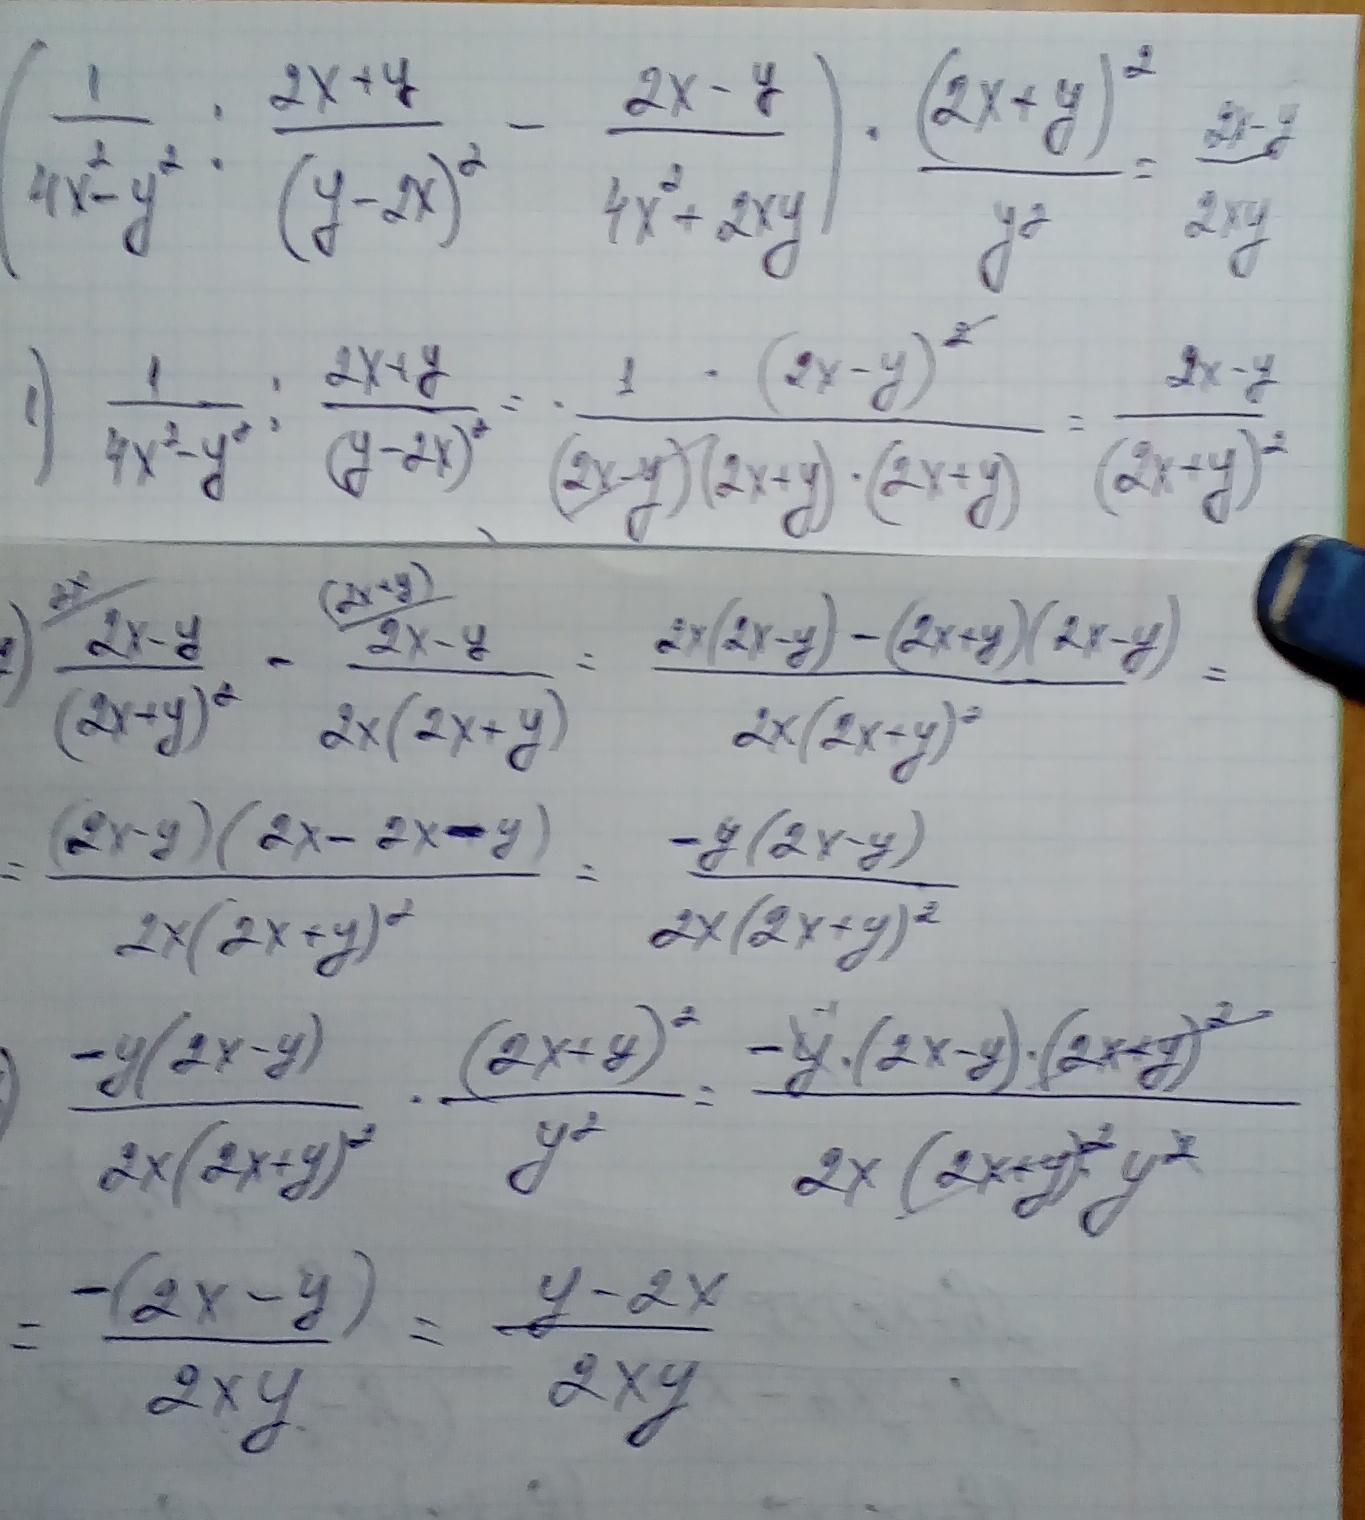 (1/(4x²-y²) : (2x+y)/(y-2x)² - (2x-y)/(4x²+2xy)) · (2x+y)²/y² = (2x-y)/(2xy)
1) 1/(4x²-y²) : (2x+y)/(y-2x)² = (1 · (2x-y)²)/((2x-y)(2x+y)·(2x+y)) = (2x-y)/(2x+y)²
2) 2x/ (2x-y)/(2x+y)² - (2x+y)/ (2x-y)/(2x(2x+y)) = (2x(2x-y)-(2x+y)(2x-y))/(2x(2x+y)²) =
= ((2x-y)(2x-2x-y))/(2x(2x+y)²) = (-y(2x-y))/(2x(2x+y)²)
) (-y(2x-y))/(2x(2x+y)²) · (2x+y)²/y² = (-y·(2x-y)·(2x+y)²)/(2x(2x+y)²y²)
= (-(2x-y))/(2xy) = (y-2x)/(2xy)